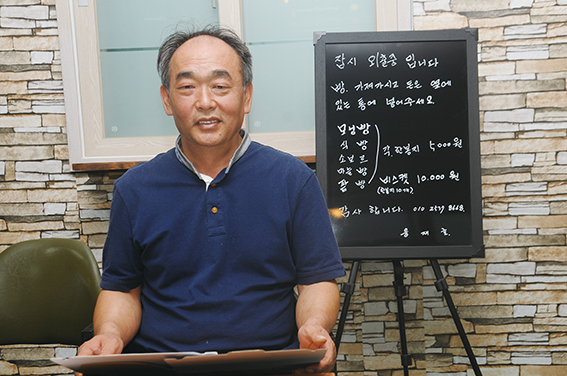 잠시 외출중 입니다
빵. 가져가시고 돈은 옆에
있는 통에 넣어주세요
모닝빵
식 빵
소보로
마늘빵
팥 빵
각. 한봉지 5000원
비스켓 10.000원
감사 합니다. 010